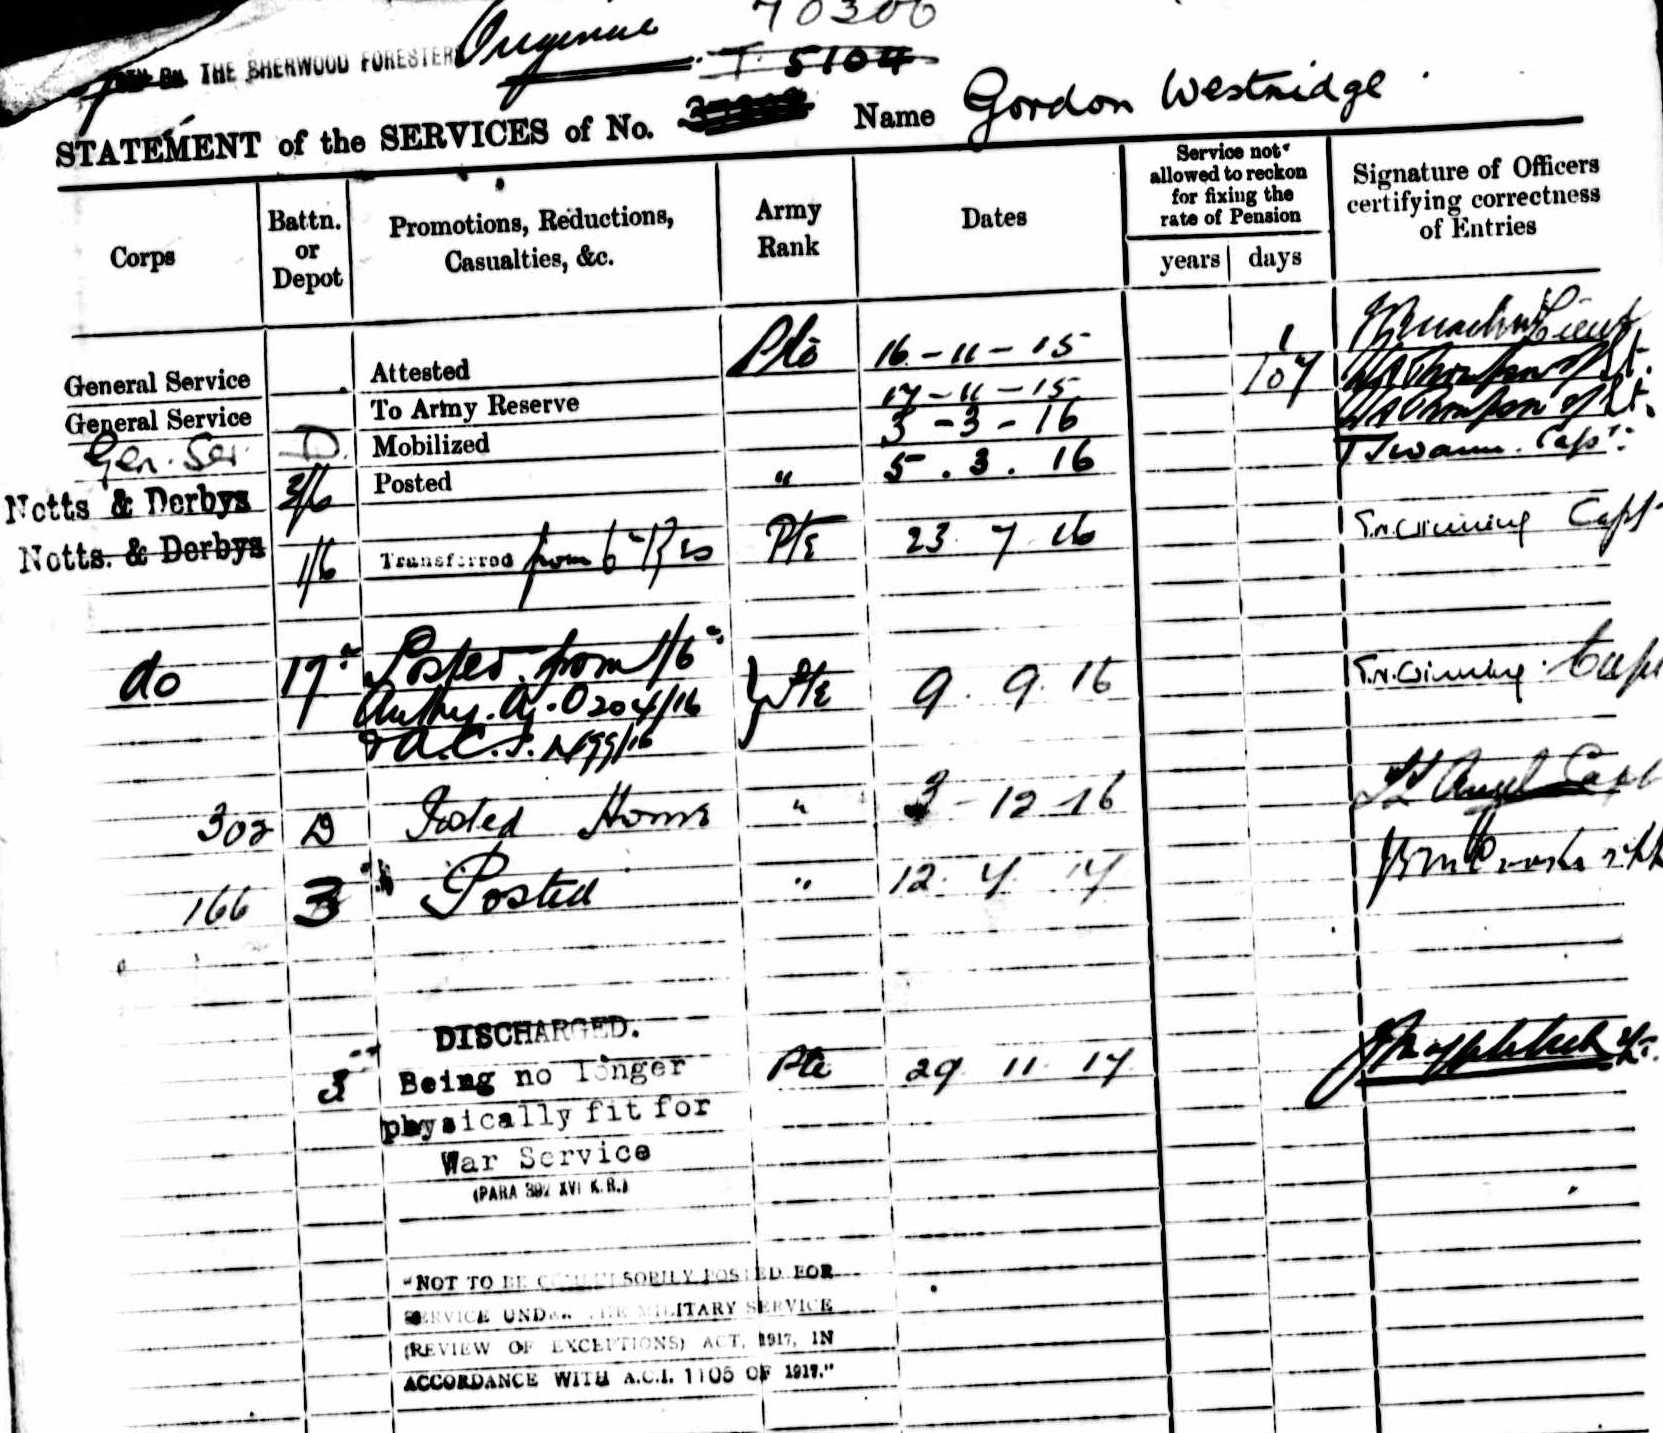 THE SHERWOOD FORESTERS Original 70306
T 5104
STATEMENT of the SERVICES of No. Name Gordon Westnidge
Corps
Battn. or Depot
Promotions, Reductions, Casualties, &c.
Army Rank
Dates
Service not allowed to reckon for fixing the rate of Pension
years days
Signature of Officers certifying correctness of Entries
General Service Attested Pte 16-11-15 1
General Service To Army Reserve 17-11-15 107
Gen. Ser D Mobilized 3-3-16
Notts & Derbys 2/6 Posted " 5.3.16 Capt.
Notts. & Derbys 1/6 Transferred from 6th Res Pte 23 7 16 Capt
do 17th Posted from 1/6th
Authy. A.O 204/16 Pte 9.9.16 Capt
& A.C.I. 1499/16
302 D Posted Home " 3-12-16 Capt
166 3 Posted " 12.4.17
DISCHARGED.
3 Being no longer Pte 29 11 17
physically fit for
War Service
(PARA 392 XVI K.R.)
"NOT TO BE COMPULSORILY POSTED FOR
SERVICE UNDER THE MILITARY SERVICE
(REVIEW OF EXCEPTIONS) ACT, 1917, IN
ACCORDANCE WITH A.C.I. 1105 OF 1917."